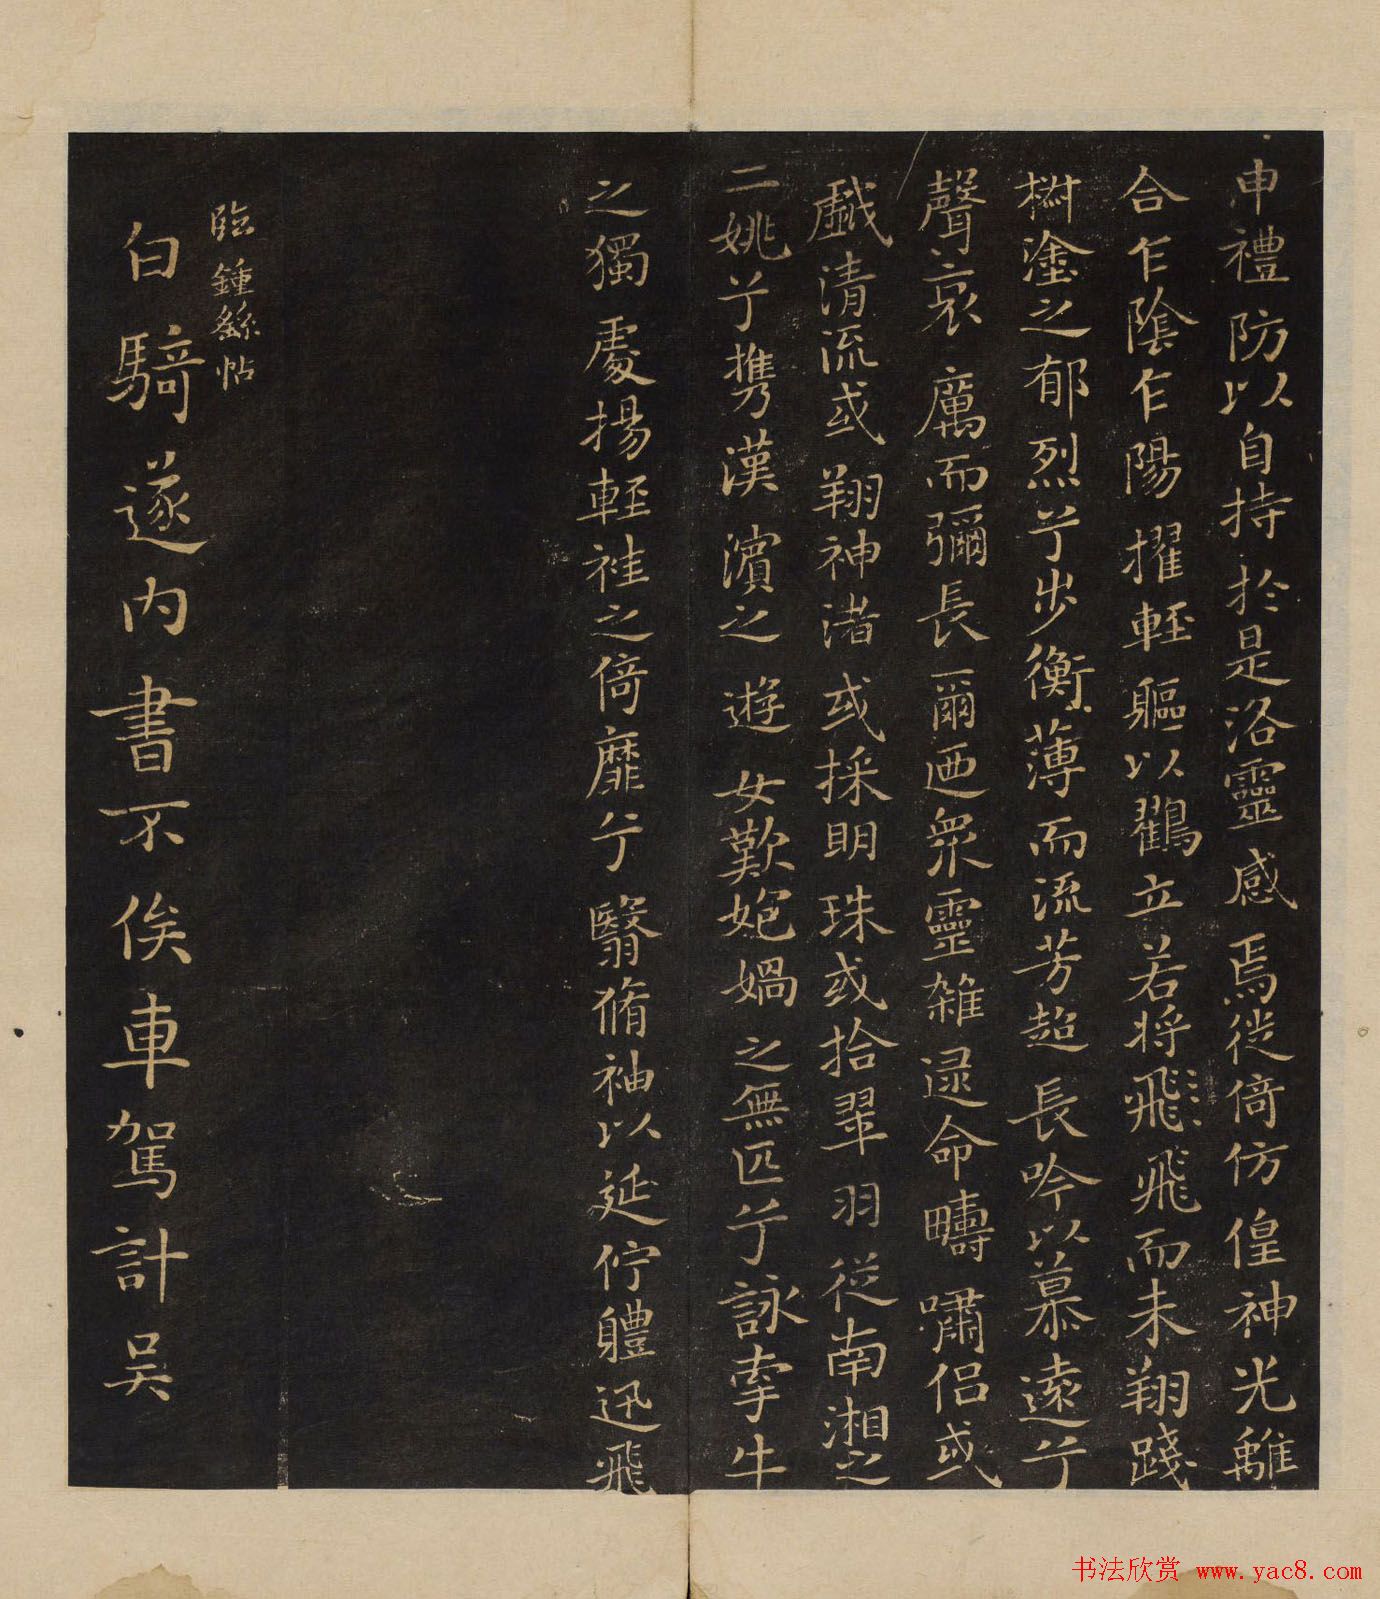 申禮防以自持於是洛靈感焉徙倚仿偟神光離
合乍陰乍陽擢輕軀以鸖立若将飛飛而未翔踐
椒塗之郁烈兮步衡薄而流芳超長吟以慕遠兮
聲哀厲而彌長爾迺衆靈雜逯命疇嘯侣或
戲清流或翔神渚或採明珠或拾翠羽從南湘之
二姚兮攜漢濱之遊女歎匏媧之無匹兮詠牽牛
之獨處揚輕袿之倚靡兮翳脩袖以延佇體迅飛
臨鍾繇帖
白騎遂内書不俟車駕計吴
书法欣赏 www.yac8.com